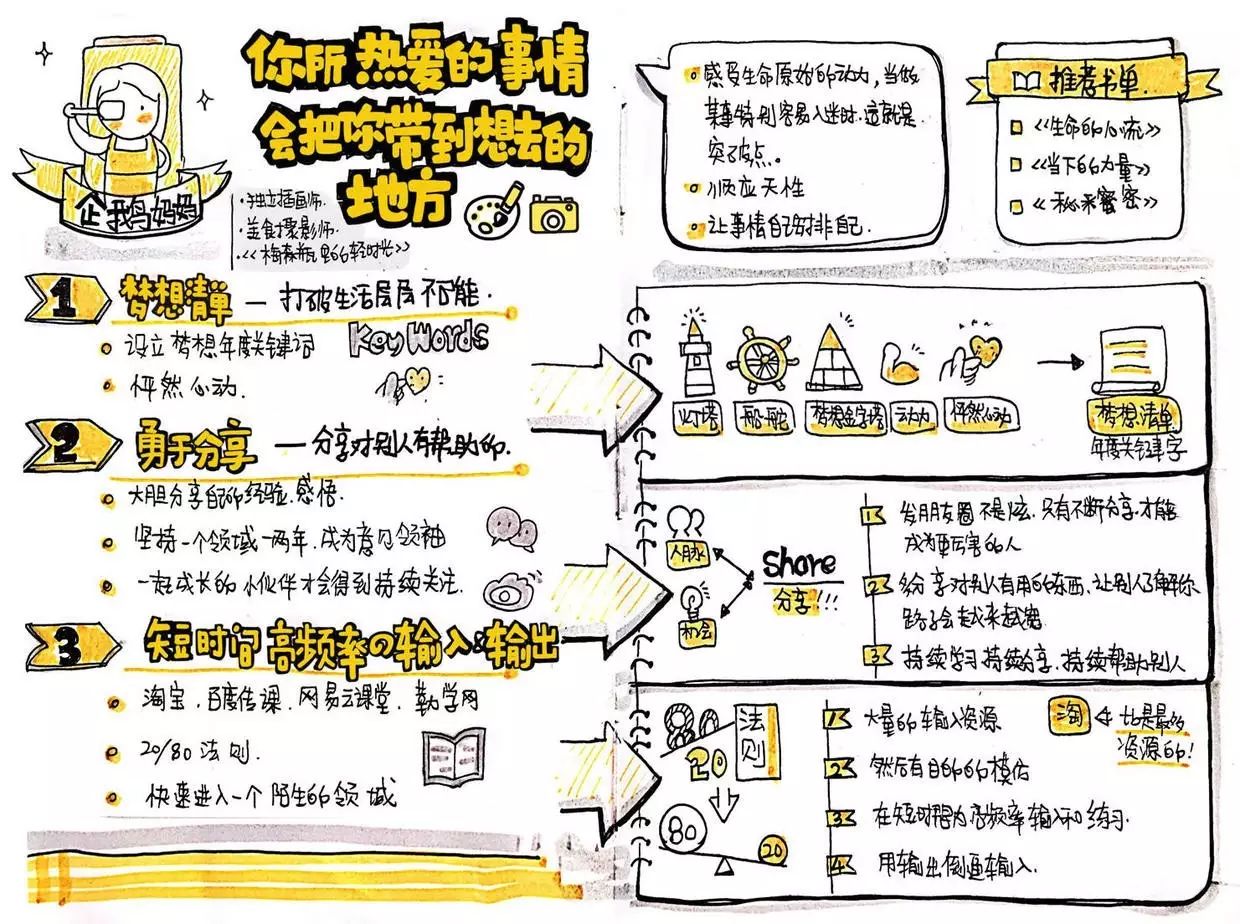 你所热爱的事情
会把你带到想去的
地方
企鹅妈妈
·独立插画师.
·美食摄影师.
·《梅森瓶里的轻时光》
感受生命原始的动力,当做
某事特别容易入迷时.这就是
突破点。
顺应天性
让事情自己安排自己.
推荐书单.
《生命的心流》
《当下的力量》
《秘术蜜密》
1 梦想清单 — 打破生活层层不可能.
设立梦想年度关键词 Key Words
怦然心动.
2 勇于分享 — 分享对别人有帮助的.
大胆分享自己的经验.感悟.
坚持一个领域一两年.成为意见领袖
一起成长的小伙伴才会得到持续关注.
3 短时间高频率の输入:输出
淘宝.百度传课.网易云课堂.勤学网
20/80法则.
快速进入一个陌生的领域
灯塔 船舵 梦想金字塔 动力 怦然心动 梦想清单
年度关键字
人脉
机会
Share
分享!!!
1 发朋友圈不是炫.只有不断分享.才能
成为更厉害的人
2 分享对别人有用的东西.让别人了解你
路子会越来越宽
3 持续学习持续分享.持续帮助别人
80
20
法则
80
20
1 大量的输入资源
淘 比是最多
资源的!
2 然后有目的的模仿
3 在短时间内高频率输入和练习.
4 用输出倒逼输入.